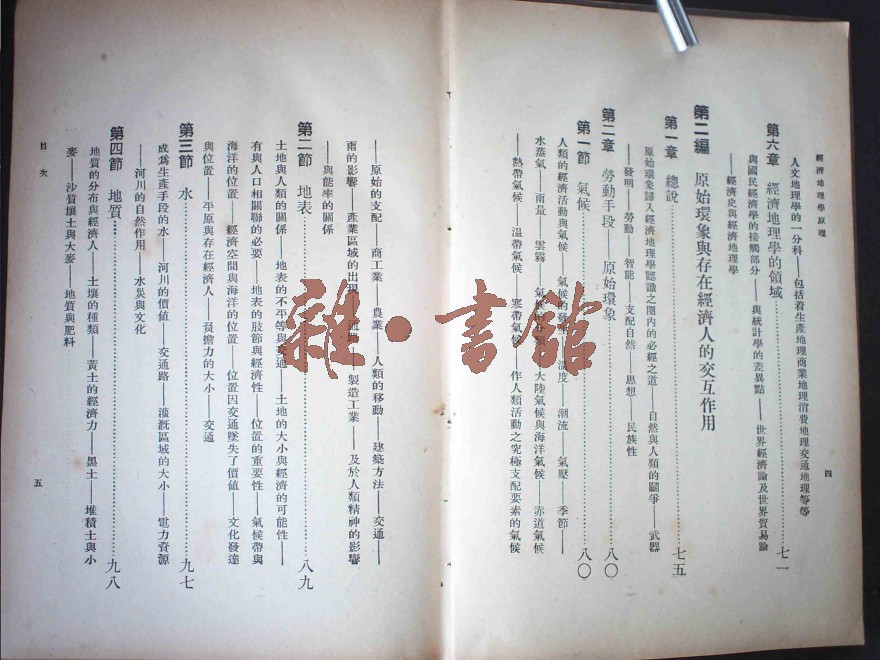 經濟地理學原理
四
第六章 經濟地理學的領域……七一
人文地理學的一分科——包括着生產地理商業地理消費地理交通地理等等
與國民經濟學的接觸部分——與統計學的差異點——世界經濟論及世界貿易論
——經濟史與經濟地理學
第二編 原始環象與存在經濟人的交互作用
第一章 總說……七五
原始環象歸入經濟地理學認識之圈內的必經之道——自然與人類的鬭爭——武器
——發明——勞動——智能——支配自然——思想——民族性
第二章 勞動手段——原始環象……八〇
第一節 氣候……八〇
人類的經濟活動與氣候——氣候的發生——溫度——潮流——氣壓——季節——
水蒸氣——雨量——雲霧——氣候的分類——大陸氣候與海洋氣候——赤道氣候
——熱帶氣候——溫帶氣候——寒帶氣候——作人類活動之究極支配要素的氣候
——原始的支配——商工業——農業——人類的移動——建築方法——交通——
雨的影響——產業區域的出現——道路——製造工業——及於人類精神的影響
——與能率的關係
第二節 地表……八九
土地與人類的關係——地表的不平等與交通——土地的大小與經濟的可能性——
有與人口相關聯的必要——地表的肢節與經濟性——位置的重要性——氣候帶與
海洋的位置——經濟空間與海洋的位置——位置因交通墜失了價值——文化發達
與位置——平原與存在經濟人——負擔力的大小——交通
第三節 水……九七
成爲生產手段的水——河川的價值——交通路——灌溉區域的大小——電力資源
——河川的自然作用——水災與文化
第四節 地質……九八
地質的分布與經濟人——土壤的種類——黃土的經濟力——黑土——堆積土與小
麥——沙質壤土與大麥——地質與肥料
目次
五
雜·書館